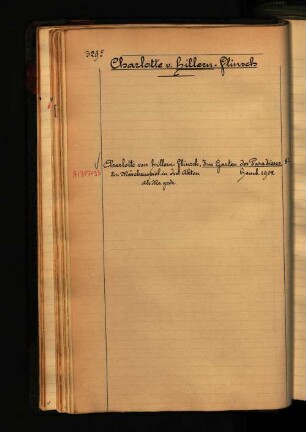 329
Charlotte v. Hillern-Flinsch
Charlotte von Hillern-Flinsch, Im Garten des Paradieses
ein Märchenspiel in drei Akten
Als Ms. gedr.
1902